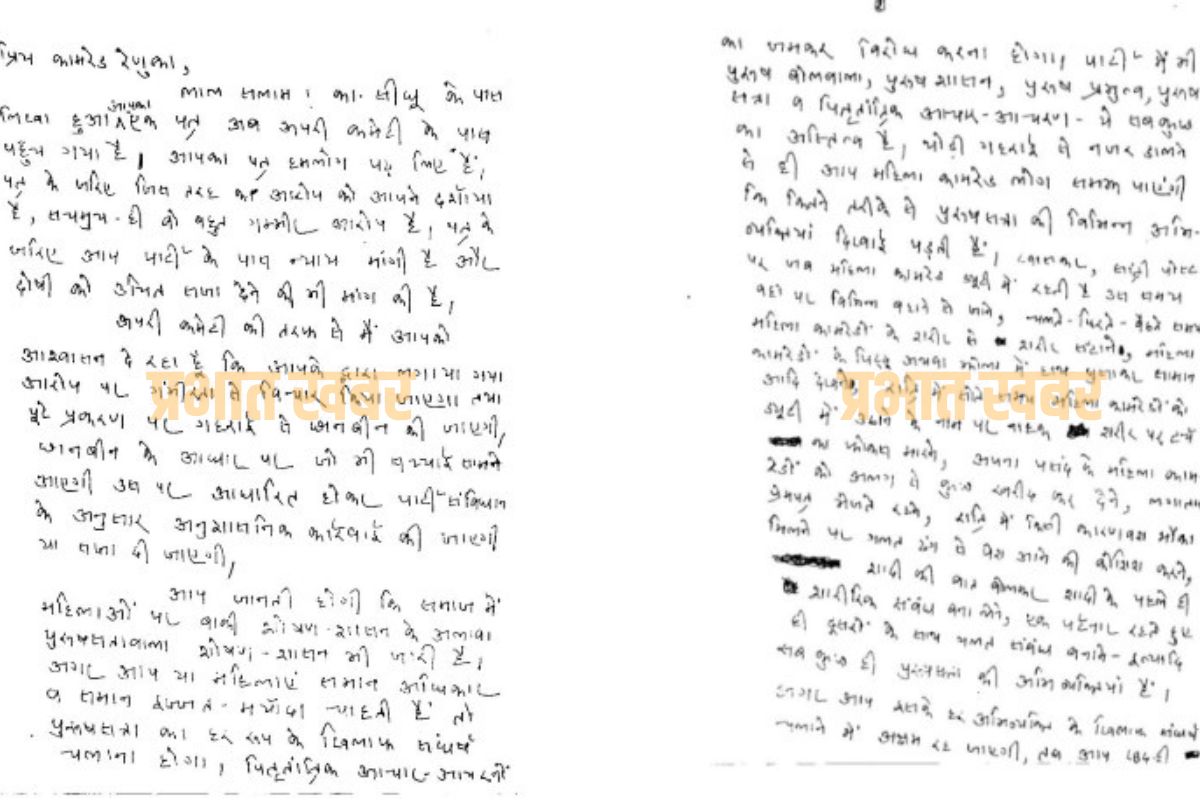 प्रिय कामरेड रेणुका,
लाल सलाम! का. सीधू के पास
आपका
लिखा हुआ एक पत्र अब अपरी कमेटी के पास
पहुंच गया है, आपका पत्र हमलोग पढ़ लिए हैं,
पत्र के जरिए जिस तरह का आरोप को आपने दर्शाया
है, सचमुच-ही वो बहुत गम्भीर आरोप है, पत्र के
जरिए आप पार्टी के पास न्याय मांगी है और
दोषी को उचित सजा देने की भी मांग की है,
अपरी कमेटी की तरफ से मैं आपको
आश्वासन दे रहा हूँ कि आपके द्वारा लगाया गया
आरोप पर गंभीरता से विचार किया जाएगा तथा
पूरे प्रकरण पर गहराई से छानबीन की जाएगी,
छानबीन के आधार पर जो भी सच्चाई सामने
आएगी उस पर आधारित होकर पार्टी संविधान
के अनुसार अनुशासनिक कार्रवाई की जाएगी
या सजा दी जाएगी,
आप जानती होगी कि समाज में
महिलाओं पर बाकी शोषण-शासन के अलावा
पुरुषसत्तावाला शोषण-शासन भी जारी है,
अगर आप या महिलाएं समान अधिकार
व समान इज्जत-मर्यादा चाहती हैं तो
पुरुषसत्ता का हर रूप के खिलाफ संघर्ष
चलाना होगा, पितृतांत्रिक आचार-आचरणों
प्रभात खबर
2
का जमकर विरोध करना होगा, पार्टी में भी
पुरुष बोलवाला, पुरुष शासन, पुरुष प्रभुत्व, पुरुष
सत्ता व पितृतांत्रिक आचार-आचरण - ये सबकुछ
का अस्तित्व है, थोड़ी गहराई से नजर डालने
से ही आप महिला कामरेड लोग समझ पाएंगी
कि कितने तरीके से पुरुषसत्ता की विभिन्न अभि-
व्यक्तियां दिखाई पड़ती हैं, खासकर, संतरी पोस्ट
पर जब महिला कामरेड ड्यूटी में रहती है उस समय
वहां पर विभिन्न बहाने से जाने, चलते-फिरते-बैठते समय
महिला कामरेडों के शरीर से शरीर सटाने, महिला
कामरेडों के पिट्ठू अथवा झोला में हाथ घुसाकर सामान
आदि देखने, रात्रि में सोते समय महिला कामरेडों को
ड्यूटी में उठाने के नाम पर नाहक शरीर पर टार्च
का फोकस मारने, अपना पसंद के महिला काम
रेडों को अलग से कुछ खरीद कर देने, लगातार
प्रेमपत्र भेजते रहने, रात्रि में किसी कारणवश मौका
मिलने पर गलत ढंग से पेश आने की कोशिश करने,
शादी की बात बोलकर शादी के पहले ही
शारीरिक संबंध बना लेने, एक पार्टनर रहते हुए
ही दूसरों के साथ गलत संबंध बनाने - इत्यादि
सब कुछ ही पुरुषसत्ता की अभिव्यक्तियां हैं।
अगर आप इसके हर अभिव्यक्ति के खिलाफ संघर्ष
चलाने में अक्षम रह जाएगी, तब आप
प्रभात खबर